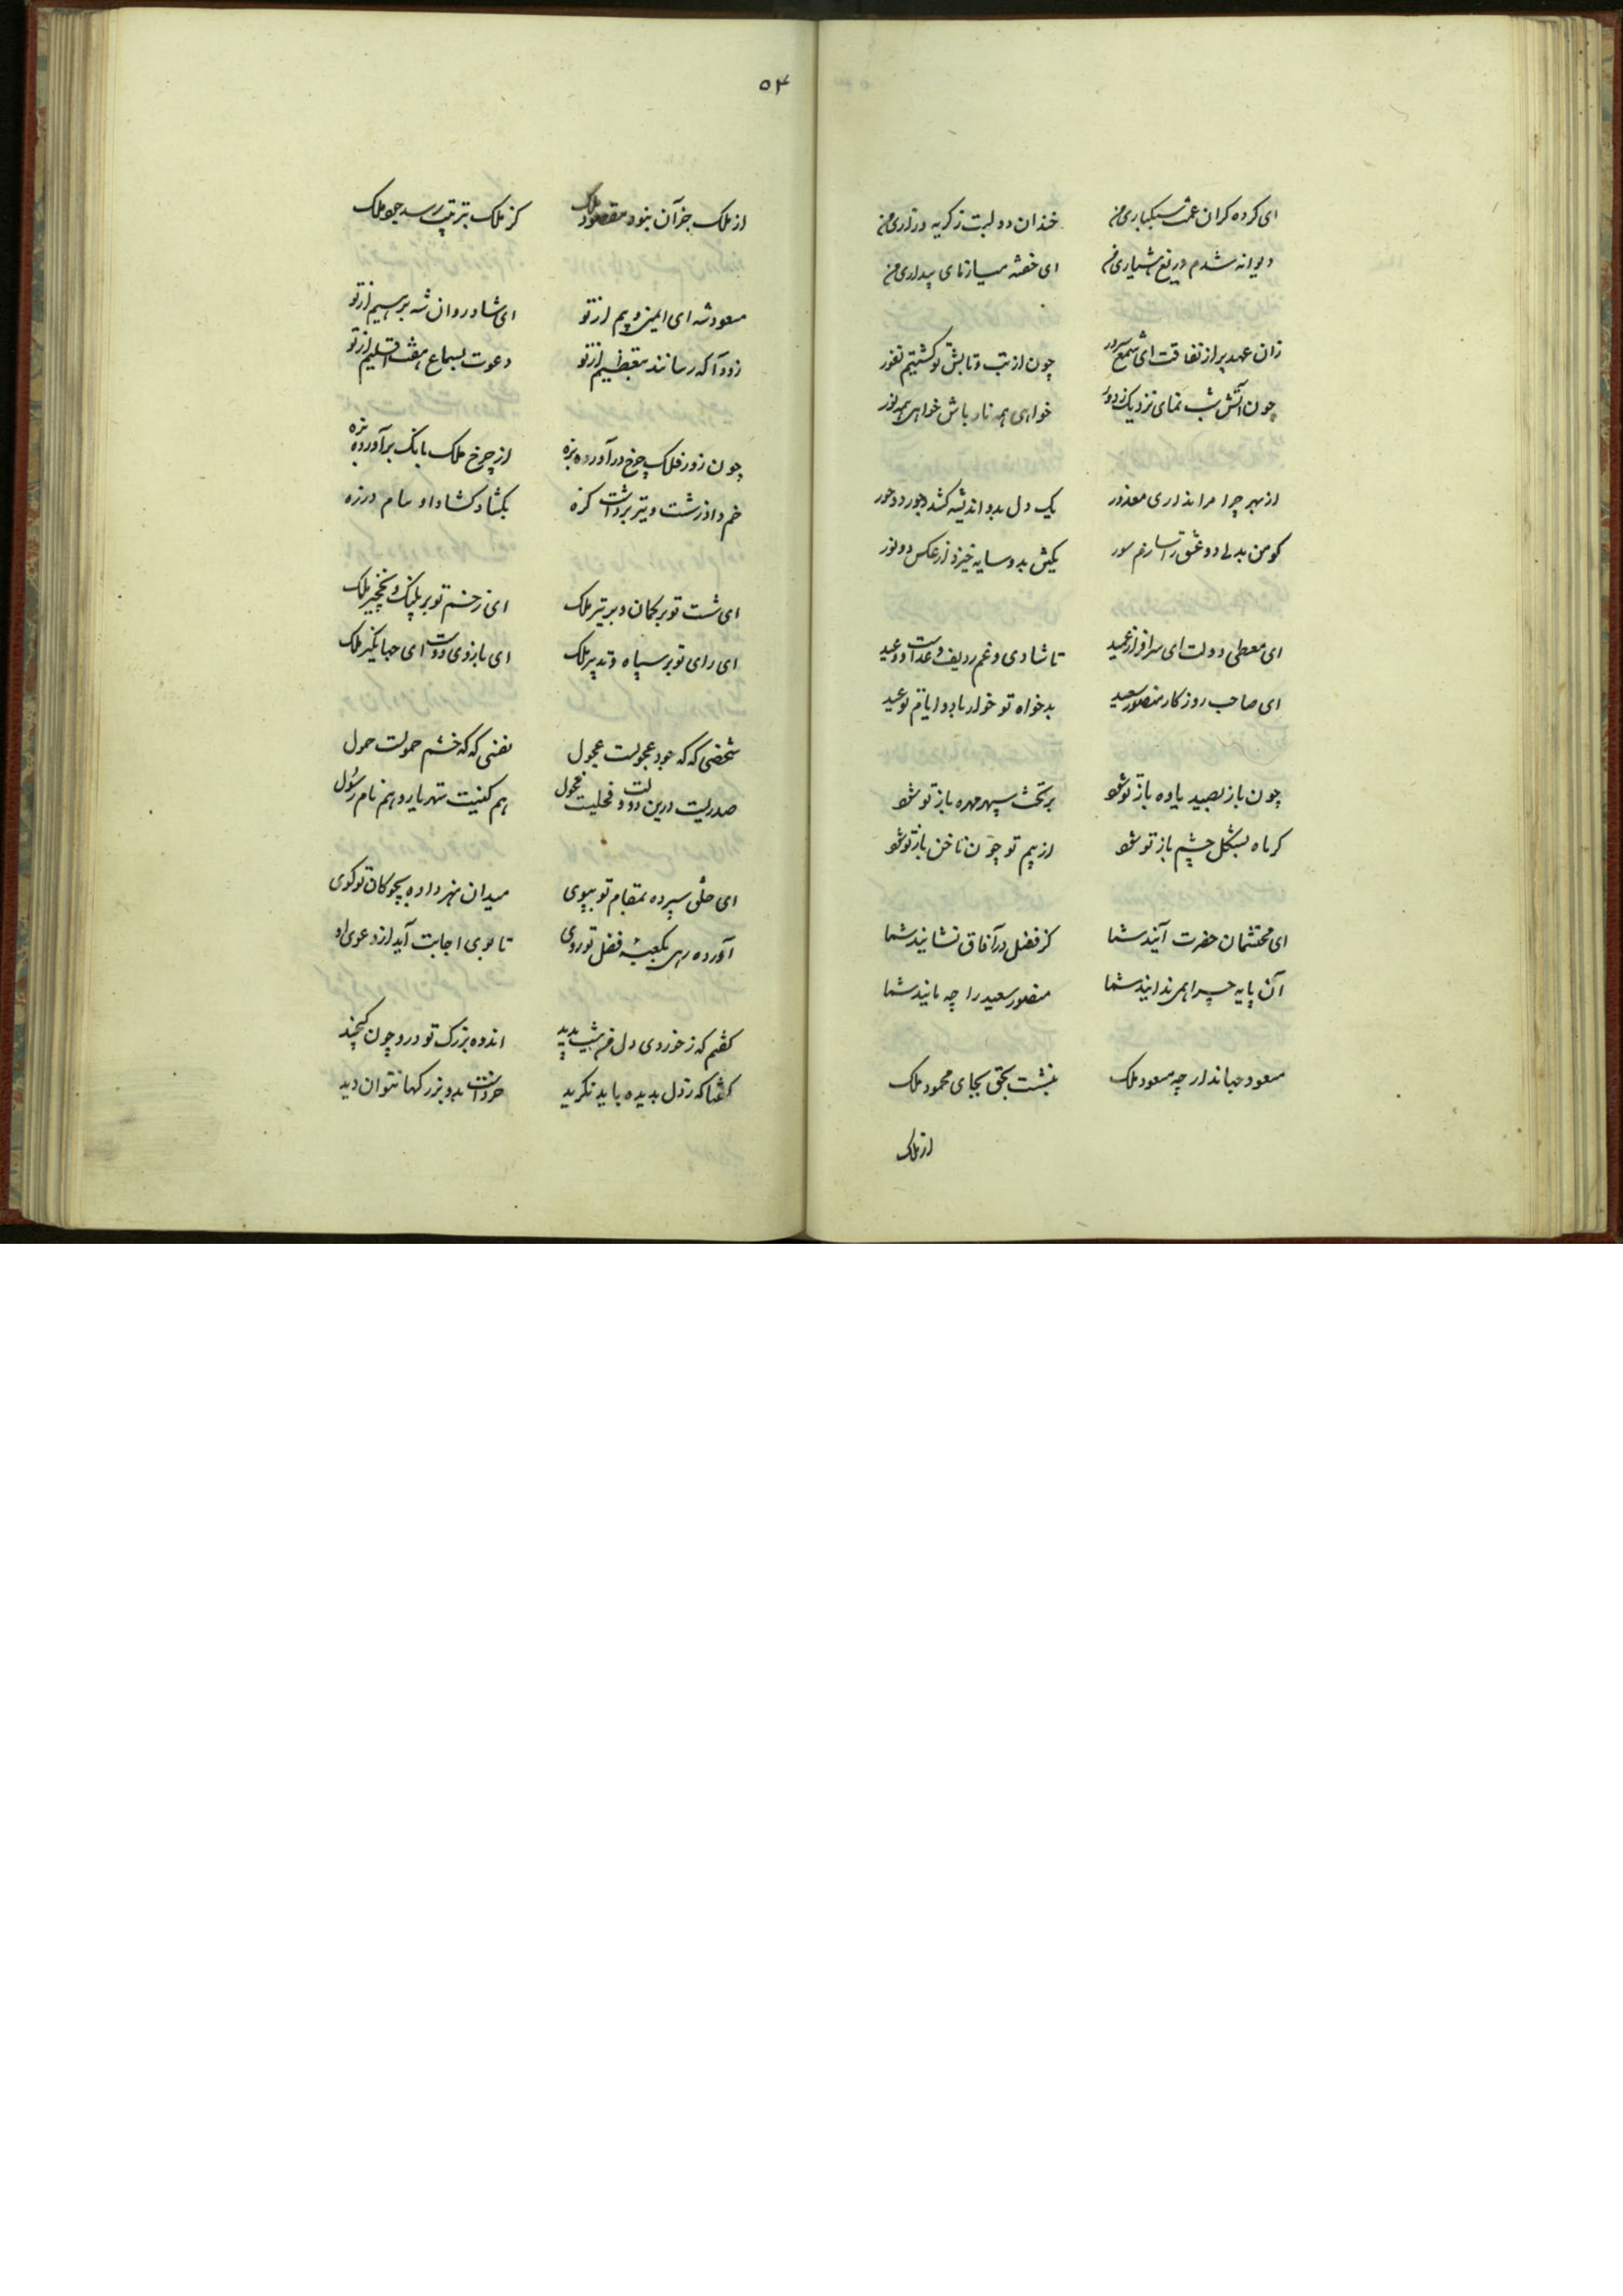 ای کرده کران غمت سبکباری من
خندان دو لبت ز کریه و زاری من
دیوانه شدم دریغ هشیاری من
ای خفته بیازمای بیداری من
زان عهد پر از نفاقت ای شمع سرور
چون از تب و تابش تو کشتیم نفور
چون آتش شب نمای نزدیک ز دور
خواهی همه نار باش خواهی همه نور
از بهر چرا مرا نداری معذور
یک دل بدو اندیشه کشد جور دو حور
کو من بدلی دو عشق را سازم سور
یکشب بدو سایه خیزد از عکس دو نور
ای معطی دولت ای سرافراز عمید
تا شادی و غم ردیف وعدست و وعید
ای صاحب روزکار منصور سعید
بدخواه تو خوار باد و ایام تو عید
چون باز بصید یاوه باز تو شود
بر تخت سپهر مهره باز تو شود
کر ماه بشکل چشم باز تو شود
از بیم تو چون ناخن باز تو شود
ای محتشمان حضرت آنید شما
کز فضل در آفاق نشانید شما
آن پایه چرا همی ندانید شما
منصور سعید را چه مانید شما
مسعود جهاندار چه مسعود ملک
بنشست بحق بجای محمود ملک
از ملک
۵۴
از ملک جز آن نبود مقصود ملک
کز ملک بترتیب رسد جود ملک
مسعود شه ای ایمن و بیم از تو
ای شاد روان شه براهیم از تو
زود آ که رسانند بتعظیم از تو
دعوت بسماع هفت اقلیم از تو
چون زور فلک چرخ درآورده بزه
از چرخ ملک بانک برآورده زه
خم داد ز شست و تیر برداشت کره
بکشاد کشاد او سام در زه
ای شست تو بر کمان و بر تیر ملک
ای زخم تو بر پلنک و نخجیر ملک
ای رای تو بر سپاه و تدبیر ملک
ای بازوی دولت ای جهانکیر ملک
شخصی که که جود عجولست عجول
نفسی که که خشم حمولست حمول
صدریست درین دولت و فحلیست فحول
هم کنیت شهریار و هم نام رسول
ای خلق سپرده بمقام تو بپوی
میدان هنر داده بچوکان تو کوی
آورده رهی بکعبه فضل تو روی
تا بوی اجابت آید از دعوی او
کفتم که ز خوردی دل من نیست پدید
اندوه بزرک تو درو چون کنجید
کفتا که ز دل بدیده باید نکرید
خردست بدو بزرکها نتوان دید